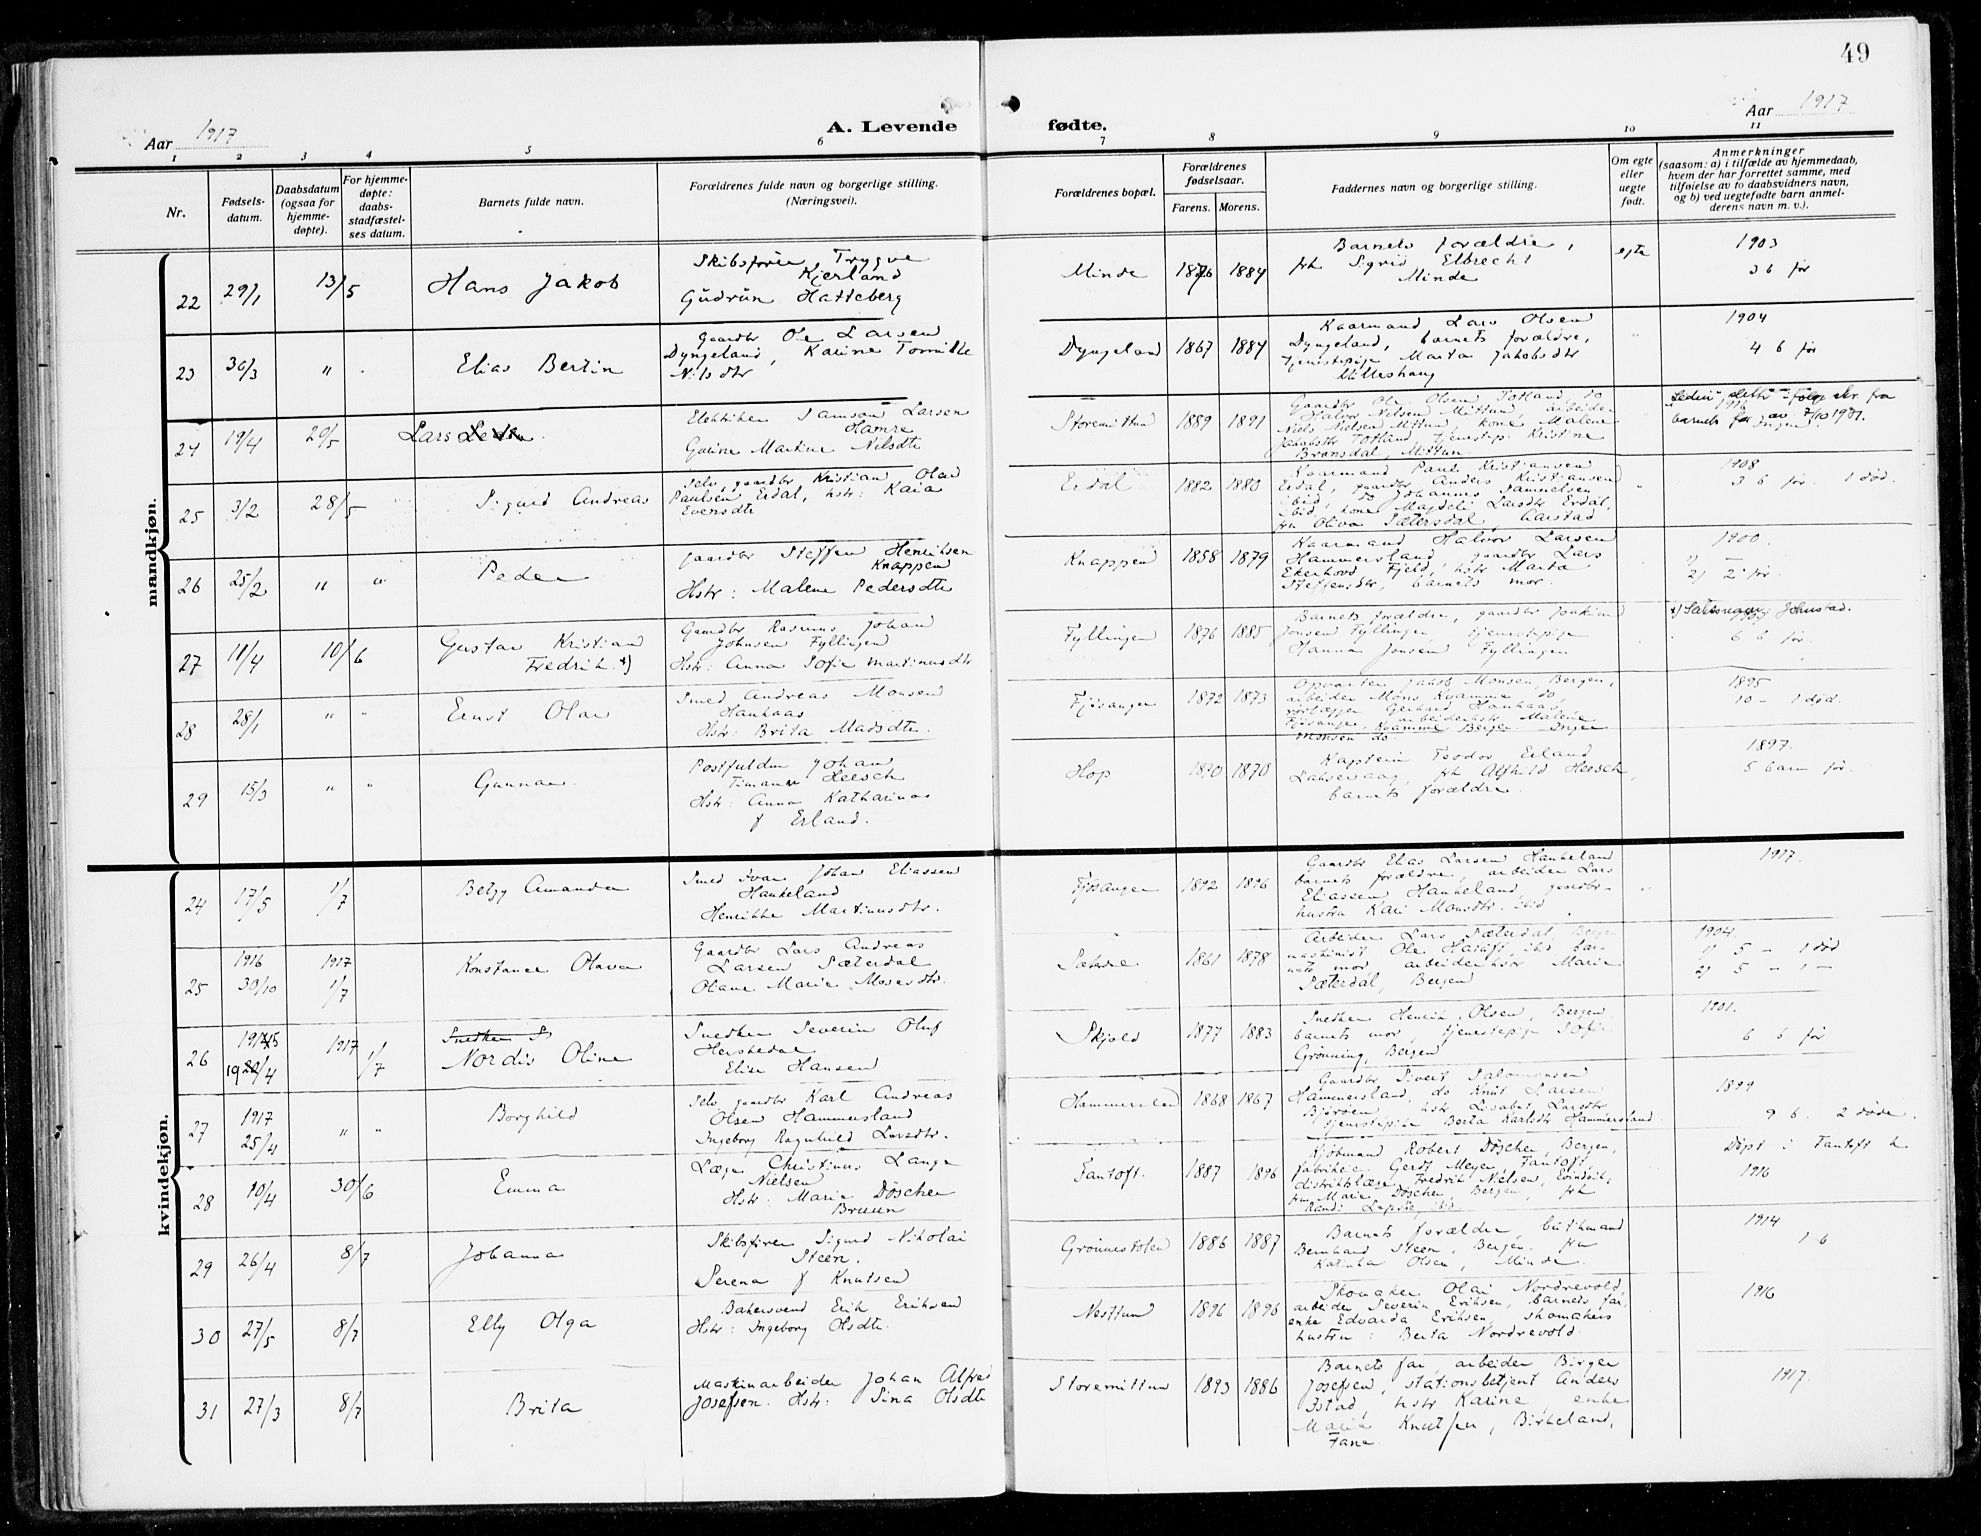 49
Aar 1917
A. Levende fødte.
Aar 1917
1 2 3 4 5 6 7 8 9 10 11
Nr.
Fødsels-
datum.
Daabsdatum
(ogsaa for
hjemme-
døpte).
For hjemme-
døpte:
daabs-
stadfæstel-
ses datum.
Barnets fulde navn.
Forældrenes fulde navn og borgerlige stilling.
(Næringsvei).
Forældrenes bopæl.
Forældrenes
fødselsaar.
Farens. Morens.
Faddernes navn og borgerlige stilling.
Om egte
eller
uegte
født.
Anmerkninger
(saasom: a) i tilfælde av hjemmedaab,
hvem der har forrettet samme, med
tilføielse av to daabsvidners navn,
og b) ved uegtefødte barn anmel-
derens navn m. v.).
mandkjøn.
22 29/1 13/5 Hans Jakob
Skibsfører Trygve
Kjerland
Gudrun Hatteberg
Minde 1876 1884
Barnets forældre,
frk Sigrid Elbrecht
Minde
egte
1903
3 b før
23 30/3 " Elias Bertin
Gaardbr Ole Larsen
Dyngeland, Karine Tomille
Nilsdtr
Dyngeland 1867 1884
Kaarmand Lars Olsen
Dyngeland, barnets forældre,
tjenestepige Marta Jakobsdtr
1904
4 b før
24 19/4 20/5 Lars
Elektriker Samson Larsen
Hamre
Martine Nilsdtr
Storemittun 1889 1891
Gaardbr Ole Olsen Totland, do
Halvor Nielsen Mittun, arbeider
Niels Nielsen Mittun, kone Malene
Jakobsdtr Totland, tjenestep. Kristine
Brønsdal, Mittun.
1916
25 3/2 28/5 Sigurd Andreas
Selv. gaardbr Kristian Olai
Paulsen Erdal, hstr: Kaia
Evensdtr
Erdal 1882 1880
Kaarmand Paul Kristiansen
Erdal, gaardbr Anders Kristiansen
ibid, do Johannes Samuelsen
ibid, kone Magdeli Larsdtr Erdal,
frk Oliva Sætersdal, Aarstad
1908
3 b før. 1 død.
26 25/2 " " Peder
Gaardbr Steffen Henriksen
Knappen
Hstr: Malene Pedersdtr
Knappen 1858 1879
Kaarmand Halvor Larsen
Hammersland, gaardbr Lars
Ekerhovd Fjeld, hstr Marta
Steffensdtr, barnets mor.
1900
1) –
2) 2 før.
27 11/4 10/6 Gustav Kristian
Fredrik. *)
Gaardbr Rasmus Johan
Johnsen Fyllingen
Hstr: Anna Sofie Martinusdtr
Fyllingen 1876 1885
Barnets forældre, gaardbr Joakim
Jonsen Fyllingen, tjenestepige
Hanna Jonsen Fyllingen
6 b før.
28 28/1 " " Ernst Olai
Smed Andreas Monsen
Haukaas
Hstr: Brita Madsdtr.
Fjøsanger 1872 1873
Opvarter Jakob Monsen, Bergen,
arbeider Møns Kvamme do,
Gerhard Haukaas,
Fjøsanger, arbeiderhstr Malene
Kvamme Bergen. Inger
Monsen do.
1895
10 – 1 død.
29 15/3 " " Gunnar.
Postfuldm Johan
Heesch
Hstr: Anna Katharinas
f Erland.
Hop 1870 1870
Kaptein Teodor Erland
Laksevaag, frk Alfhild Heesch,
barnets forældre.
1897.
5 barn før.
kvindekjøn.
24 17/5 1/7 Betzy Amanda
Smed Ivar Johan Eliassen
Haukeland
Henrikke Martinusdtr.
Fjøsanger 1892 1896
Gaardbr Elias Larsen Haukeland
barnets forældre, arbeider Lars
Eliassen Haukeland, gaardbr-
hustru Kari Monsdtr. ibid.
"
1917.
25 1916 30/10 1917 1/7 Konstance Olava
Gaardbr Lars Andreas
Larsen Sæterdal
Olane Marie Mosesdtr.
1861 1878
Arbeider Lars Sæterdal, Bergen
maskinist Ole ibid bar-
nets mor, arbeiderhstr Marie
Sæterdal, Bergen
1904.
1) 5 – 1 død
2) 5 – 1 –
26 1915 19/4 1917 1/7 Nordis Oline
Snedker Severin Oluf
Herstedal
Elise Hansen
Skjold 1877 1883
Snedker Henrik Olsen, Bergen.
barnets mor, tjenestepige Sofie
Grønning, Bergen
1901.
6 b før
27 1917 25/4 " " Borghild
Selv. gaardbr Karl Andreas
Olsen Hammersland
Ingeborg Ragnhild Larsdtr.
Hammersland 1868 1867
Gaardbr Sivert Salomonsen
Hammersland, do Knut Larsen
Bjørsen, hstr Lisabet Larsdtr
tjenestepike Berta Karlsdtr Hammersland.
1899
9 b. 2 døde.
28 10/4 30/6 Emma
Læge Christinus Lange
Nielsen
Hstr: Marie Döscher
Bruun
Fantoft. 1887 1896
Kjøbmand Robert Döscher, Bergen,
fabrikeier Gerdt Meyer, Fantoft,
distriktslæge Fredrik Nielsen, Evindvik,
fru Marie Döscher, Bergen, frk
Randi ibid.
Døpt i Fantoft k
1916
29 26/4 8/7 Johanna
Skibsfører Sigurd Nikolai
Steen.
Serena f Knutsen
Grønnestølen 1886 1887
Barnets forældre, butikmand
Bernhard Steen, Bergen. fru
Katinka Olsen, Minde.
1914
1 b
30 27/5 8/7 Elly Olga
Bakersvend Erik Eriksen
Hstr: Ingeborg Olsdtr.
Nesttun 1896 1896
Skomaker Olai Nordrevold,
arbeider Severin Eriksen, barnets far,
enke Edvarda Eriksen, skomakers
hustru: Berta Nordrevold.
1916
31 27/3 8/7 Brita
Maskinarbeider Johan Alfred
Josefsen. Hstr: Sina Olsdtr
Storemittun 1893 1886
Barnets far, arbeider Birger
Josefsen, stationsbetjent Anders
Istad, hstr Karine, enke
Knutsen, Birkeland,
Fane.
1917.